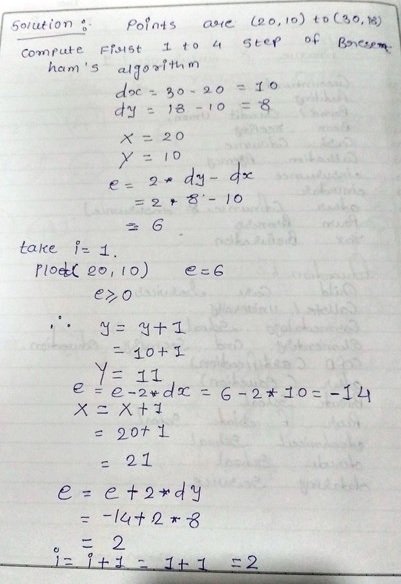 Solution : Points are (20,10) to (30,18)
Compute First 1 to 4 step of Bresen-
ham's algorithm
dx = 30 - 20 = 10
dy = 18 - 10 = 8
X = 20
Y = 10
e = 2* dy - dx
= 2 * 8 - 10
= 6
take i= 1.
Plot( 20,10) e=6
e≥0
∴ y = y+1
= 10+1
Y = 11
e = e-2*dx = 6-2*10= -14
X = X+1
= 20+1
= 21
e = e+2*dy
= -14+2*8
= 2
i= i+1 = 1+1 =2